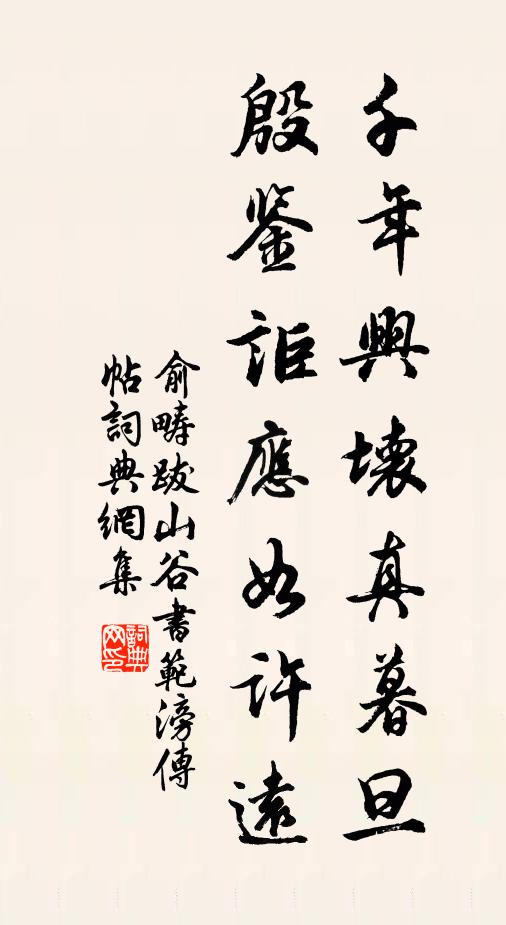 千年興壞真暮旦
殷鑒詎應如許遠
俞疇跋山谷書範滂傳
帖詞典網集
詞典网印